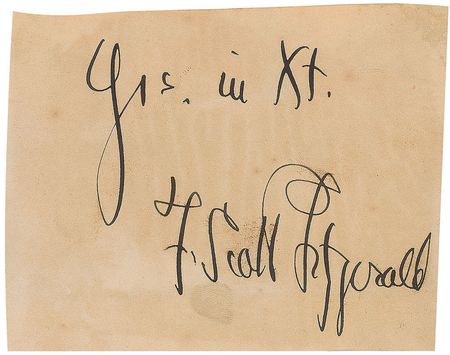 Yrs. in Xt.
F. Scott Fitzgerald